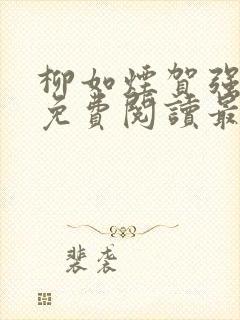 柳如煙賀強
免費閱讀最
裴裘